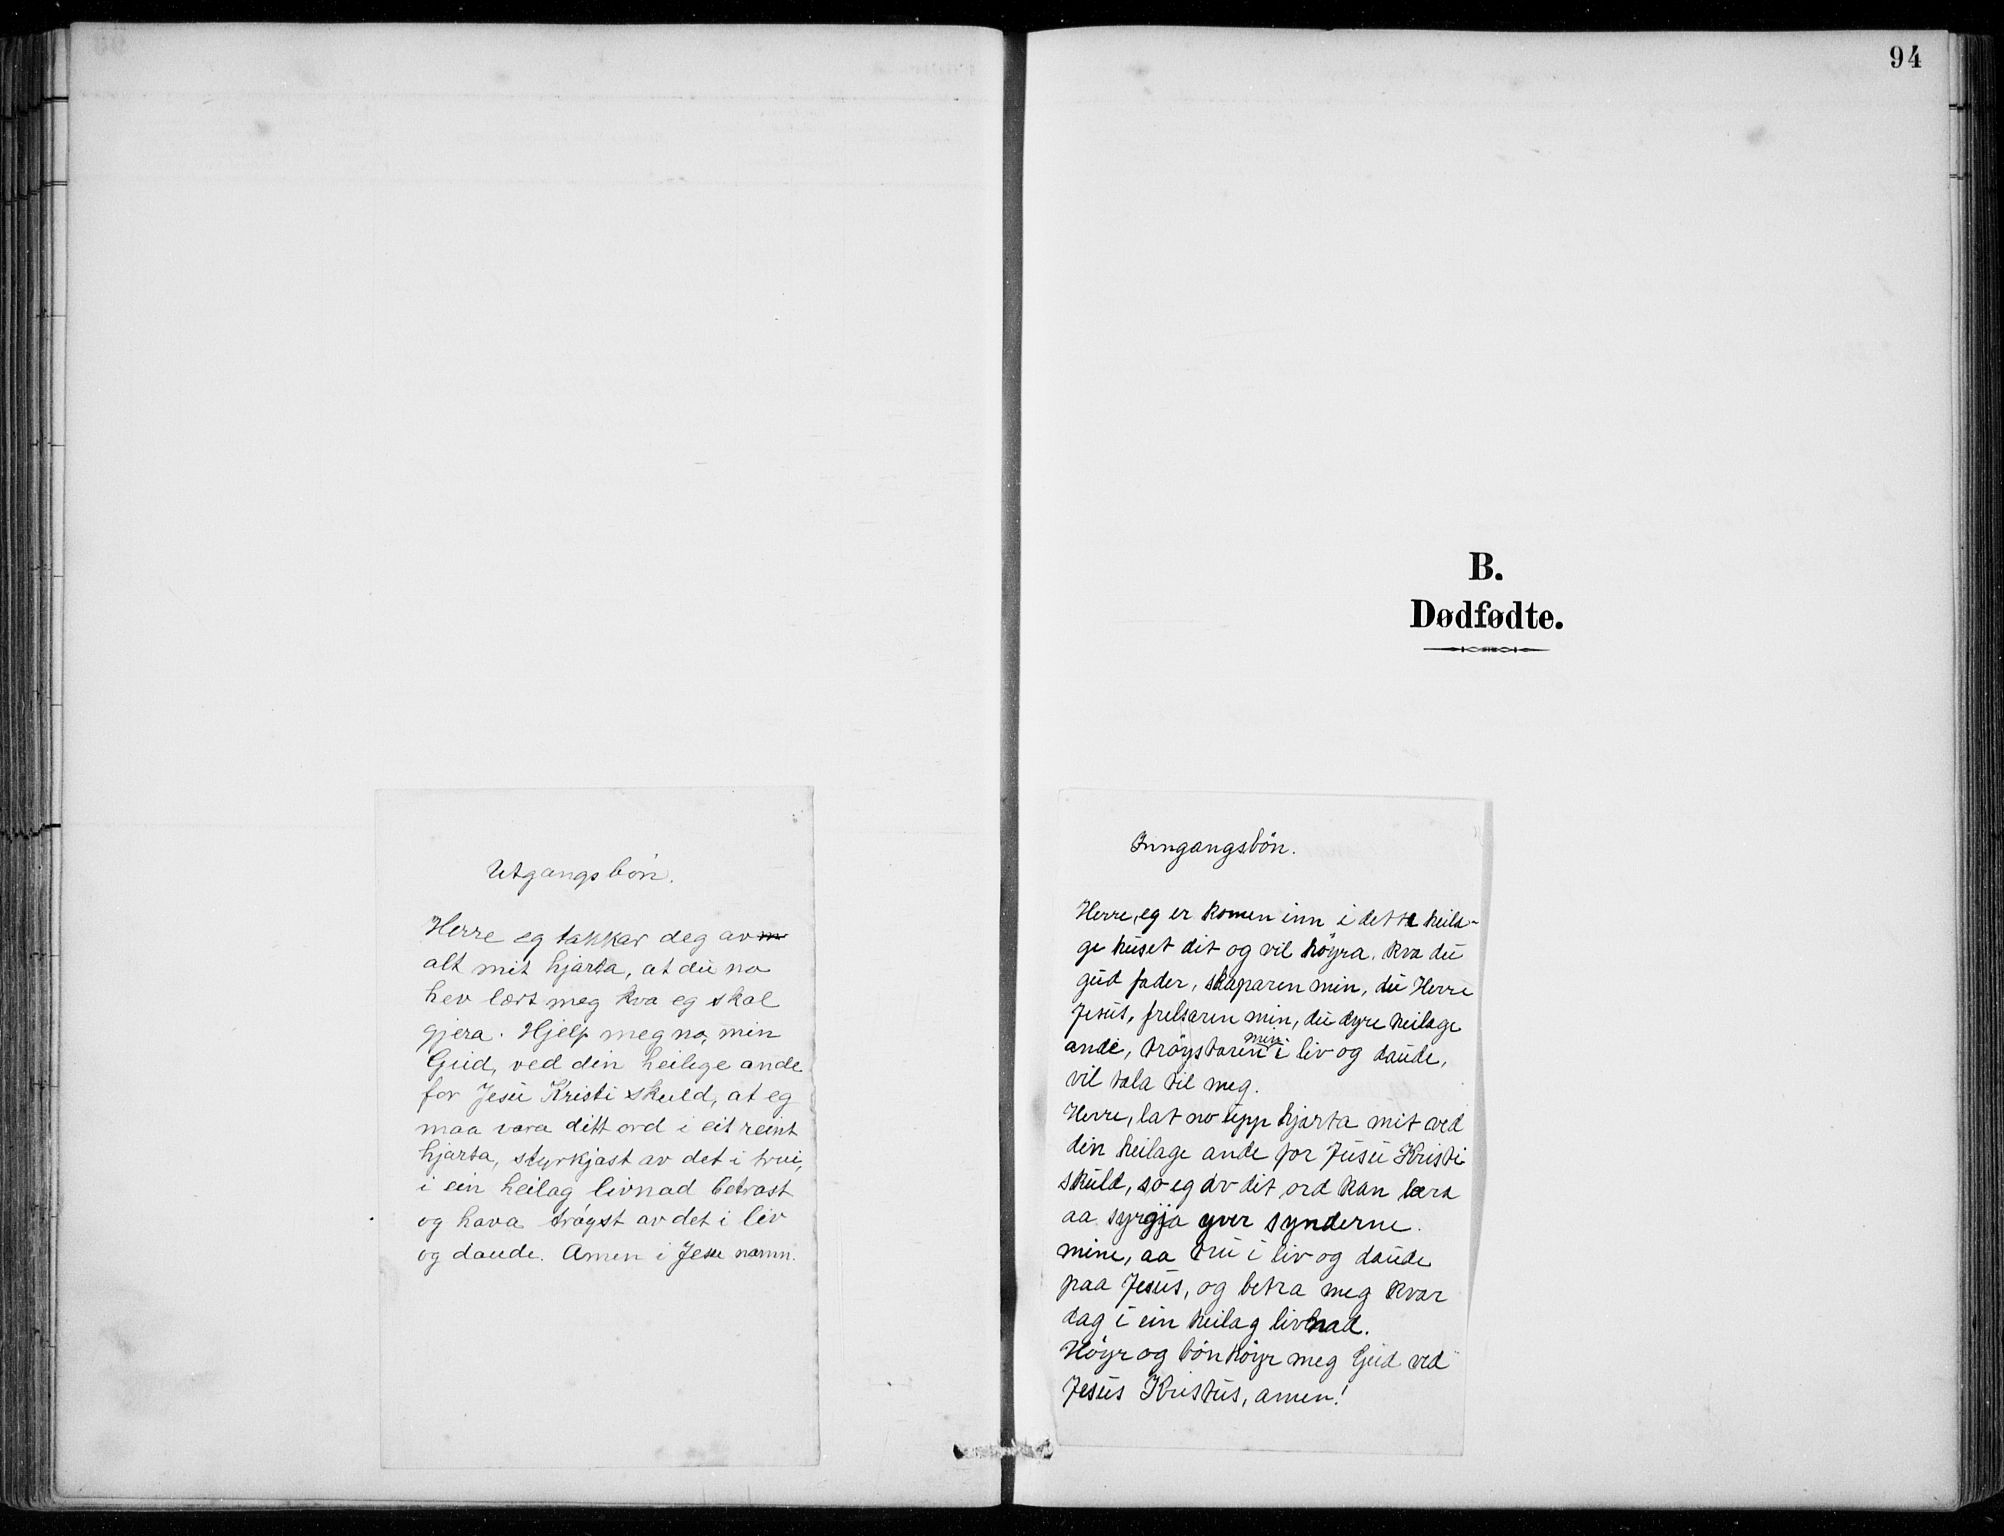 Utgangsbön.
Herre eg takkar deg av m
alt mit hjarta, at du no
hev lært meg kva eg skal
gjera. Hjelp meg no, min
Gud, ved din heilege ande
for Jesu Kristi skuld, at eg
maa vara ditt ord i eit reint
hjarta, styrkjast av det i trui,
i ein heilag livnad betrast
og hava tröyst av det i liv
og daude. Amen i Jesu namn.
94
B.
Dødfødte.
Inngangsbön.
Herre, eg er komen inn i dette heila-
ge huset dit og vil höyra, kva du
gud fader, skaparen min, du Herre
Jesus, frelsaren min, du dyre heilage
ande, tröystaren min i liv og daude,
vil tala til meg.
Herre, lat no upp hjarta mit ved
din heilage ande for Jusu Kristi
skuld, so eg av dit ord kan læra
aa syrgja yver synderne
mine, aa tru i liv og daude
paa Jesus, og betra meg kvar
dag i ein heilag livnad.
Höyr og bönhöyr meg Gud ved
Jesus Kristus, amen!